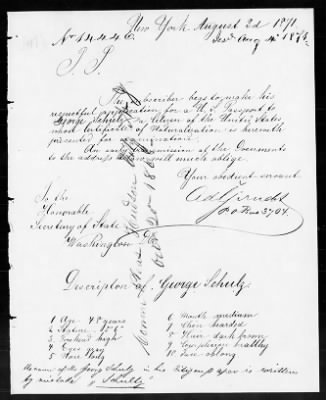 New York August 2d 1871.
No 14446 Recd Aug 4th 1871
The Subscriber begs to make his
respectful application for a U.S. Passport to
George Schultz a Citizen of the United States
whose Certificate of Naturalization is herewith
presented for examination.
An early transmission of the Documents
to the address will much oblige.
Your obedient servant
P.O. Box 3704.
To the
Honorable
Secretary of State
Washington D.C.
Description of George Schultz.
1 Age 48 years
2 Stature 5' 6"
3 Forehead high
4 Eyes gray
5 Nose long
6 Mouth medium
7 Chin bearded
8 Hair dark brown
9 Complexion healthy
10 Face oblong
The name of the George Schultz in his Citizen paper is written
by mistake "Schultz"